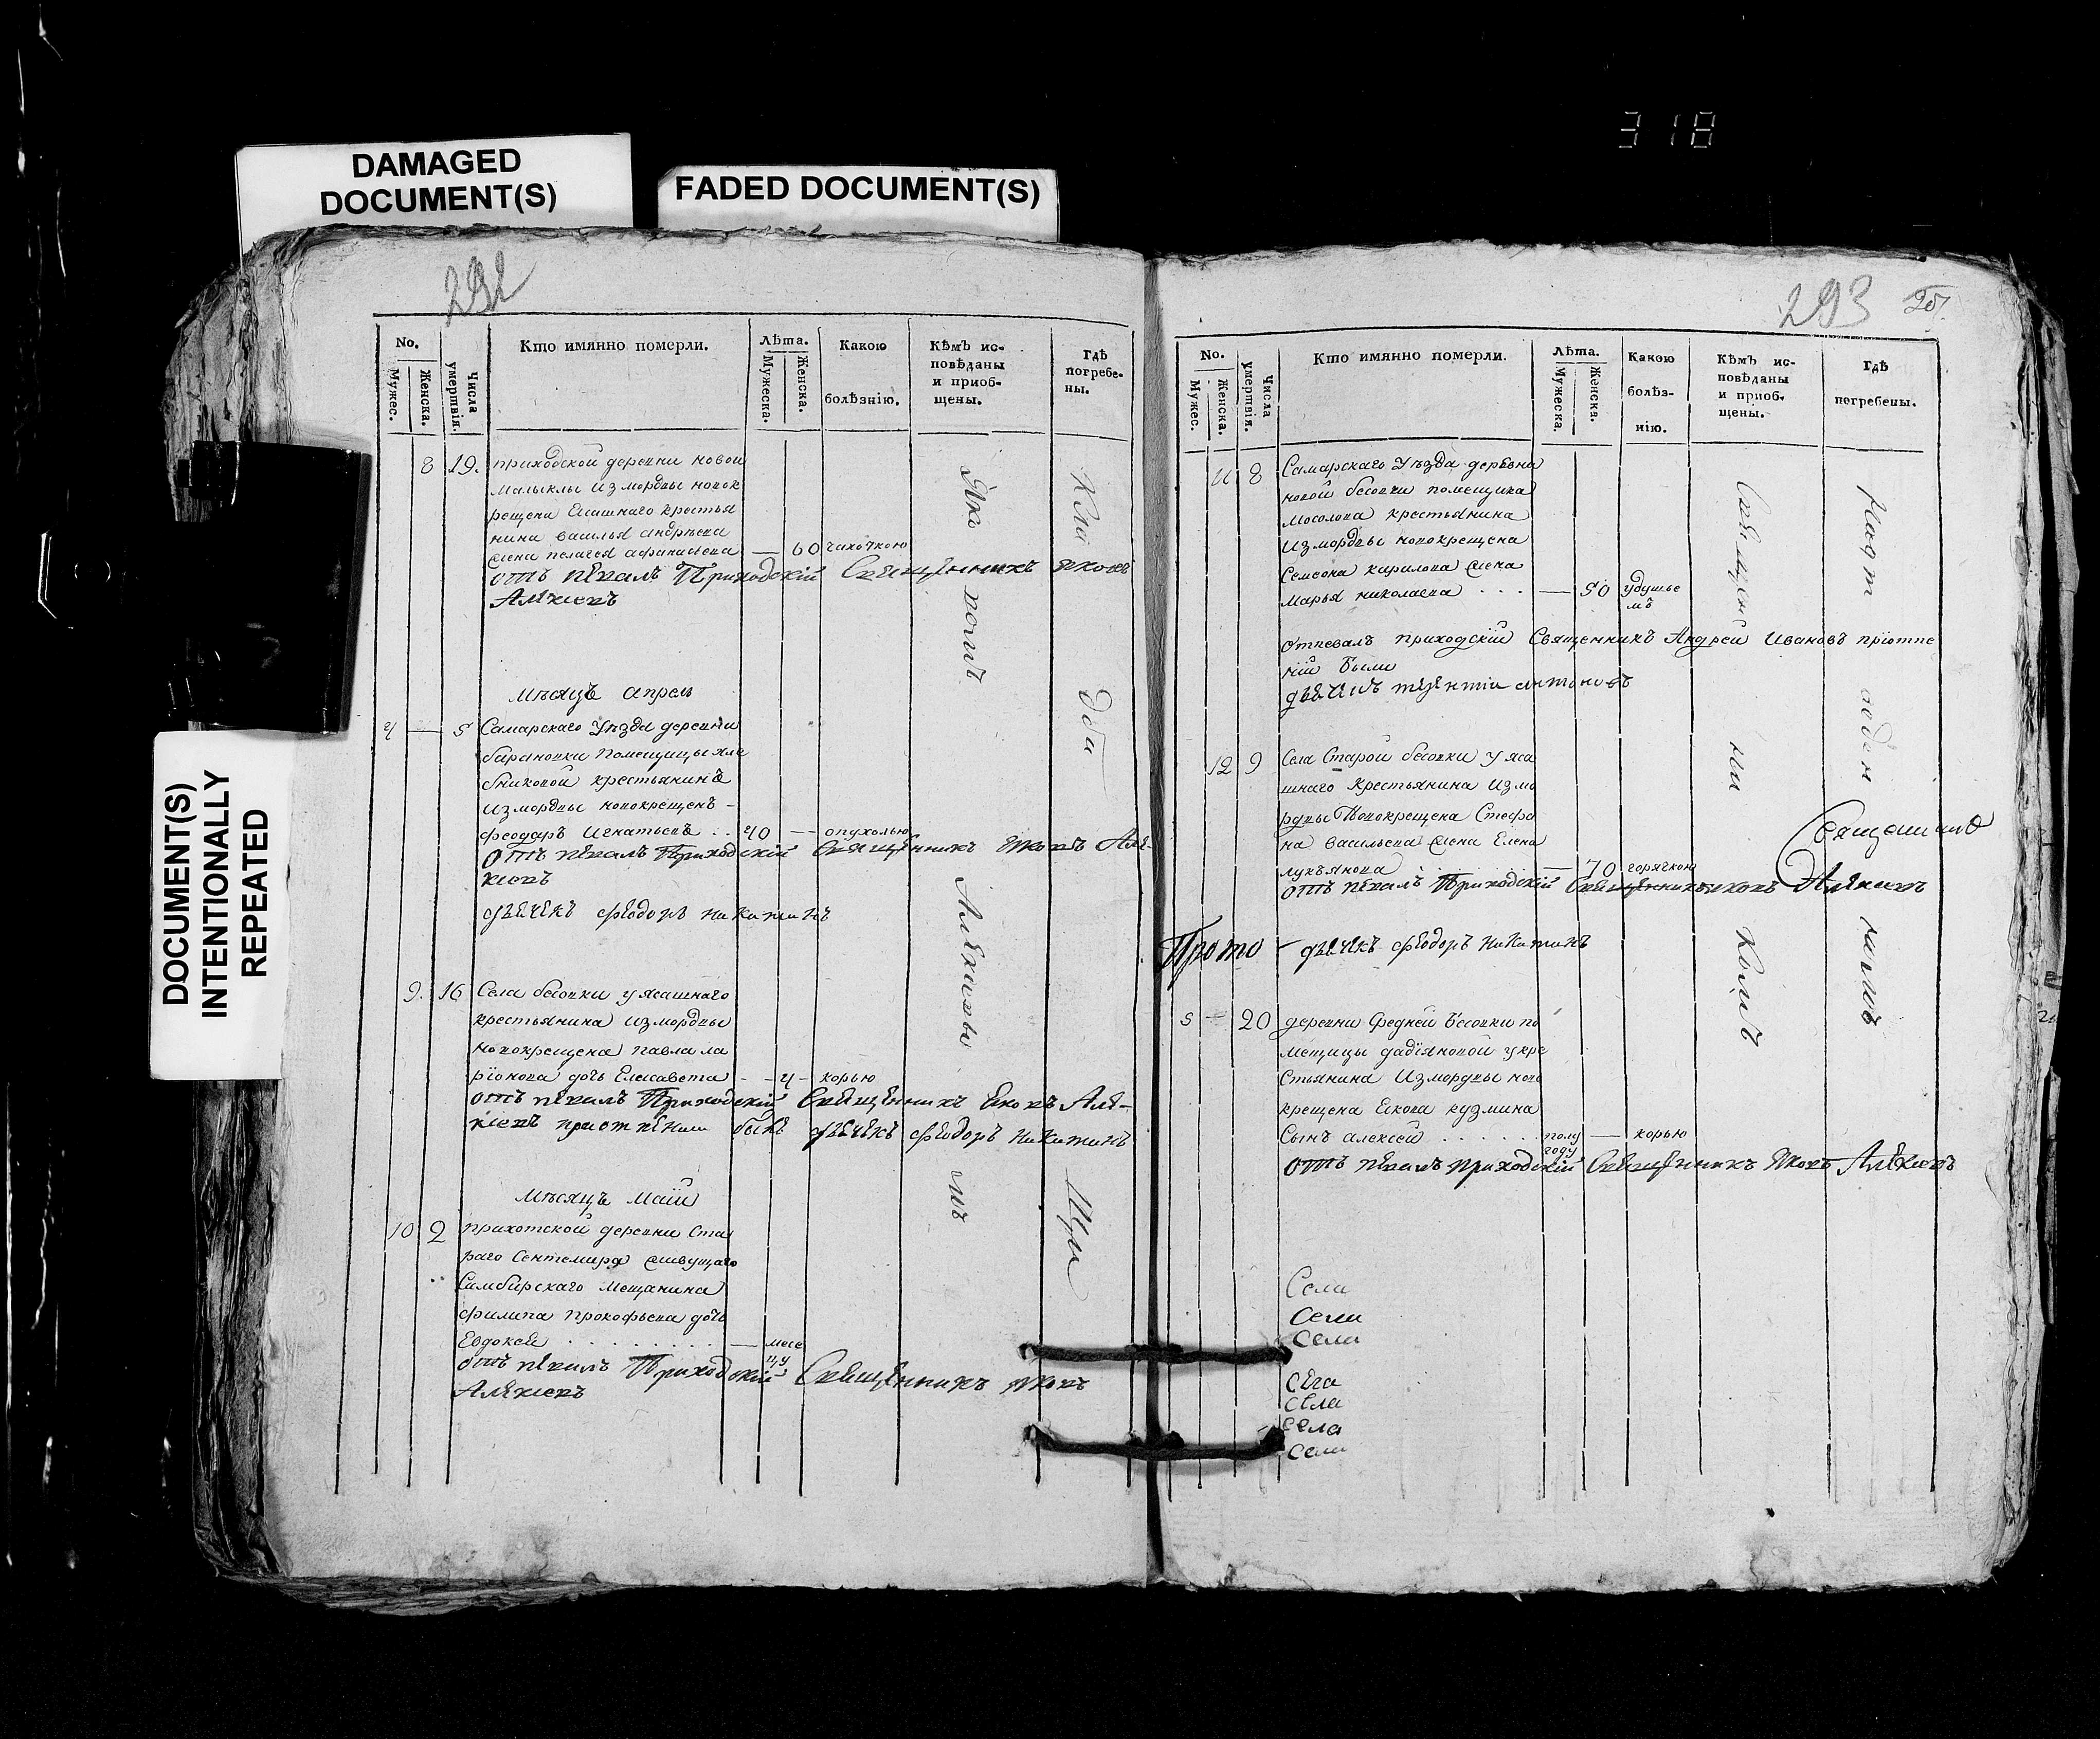 318
DAMAGED
DOCUMENT(S)
FADED DOCUMENT(S)
DOCUMENT(S)
INTENTIONALLY
REPEATED
292
No.
Мужес.
Женска.
Числа умертвія.
Кто имянно померли.
Лѣта.
Мужеска.
Женска.
Какою
болѣзнію.
Кѣмъ ис-
повѣданы
и приоб-
щены.
Гдѣ
погребе-
ны.
8 19. приходской деревни новои
Малыклы из мордвы новок
рещена Ясашнаго крестья
нина василья андрѣева
жена пелагея афанасьева — 60 чахоткою
отъ пѣвалъ Приходскій Священникъ яковъ
Алѣкіевъ
мѣсяцъ апрель
4 — 5 Самарскаго уѣзда деревни
барановки помещицы хле
бниковой крестьянинъ
измордвы новокрещенъ -
феодоръ Игнатьевъ . . 40 — опухолью
отъ пѣвалъ Приходскій Священникъ яковъ Алѣ-
кіевъ
дьячекъ феодоръ никитинъ
9. 16 Села бесовки уясашнаго
крестьянина измордвы
новокрещена павла ла
ріонова дочь Елисавета - - 4 - корью
отъ пѣвалъ Приходскій Священникъ яковъ Алѣ-
кіевъ приотпѣнии былъ дьячекъ феодоръ никитинъ
мѣсяцъ маiй
10 2 прихотской деревни Ста
раго Сентемира живущаго
Симбирскаго мещанина
филипа прокофьева дочь
Евдокея . . . . . — месе
цу
отъ пѣвалъ Приходскій Священникъ яковъ
Алѣкіевъ
293
No.
Мужес.
Женска.
Числа умертвія.
Кто имянно померли.
Лѣта.
Мужеска.
Женска.
Какою
болѣз-
нію.
Кѣмъ ис-
повѣданы
и приоб-
щены.
Гдѣ
погребены.
11 8 Самарскаго уѣзда деревни
новой бесовки помещика
Мосолова крестьянина
измордвы новокрещена
Семеона кирилова жена
Марья николаева . . . — 50 удушье
мъ
отпевалъ приходскій Священникъ Андрей Ивановъ пріотпе
ніи были
12 9 Села Старой бесовки уяса
шнаго крестьянина измо
рдвы Новокрещена Стефа
на васильева жена Елена
лукъянова — 70 горячкою
отъ пѣвалъ Приходскій Священникъ яковъ Алѣкіевъ
Священникъ
Прото - дьячекъ феодоръ никитинъ
5 — 20 деревни Средней бесовки по
мещицы дадіяновой укре
стьянина измордвы ново
крещена Якова кузмина
Сынъ алексей . . . . . . полу — корью
году
отъ пѣвалъ приходскій Священникъ яковъ Алѣкіевъ
Села
Села
Села
Села
Села
Села
Села